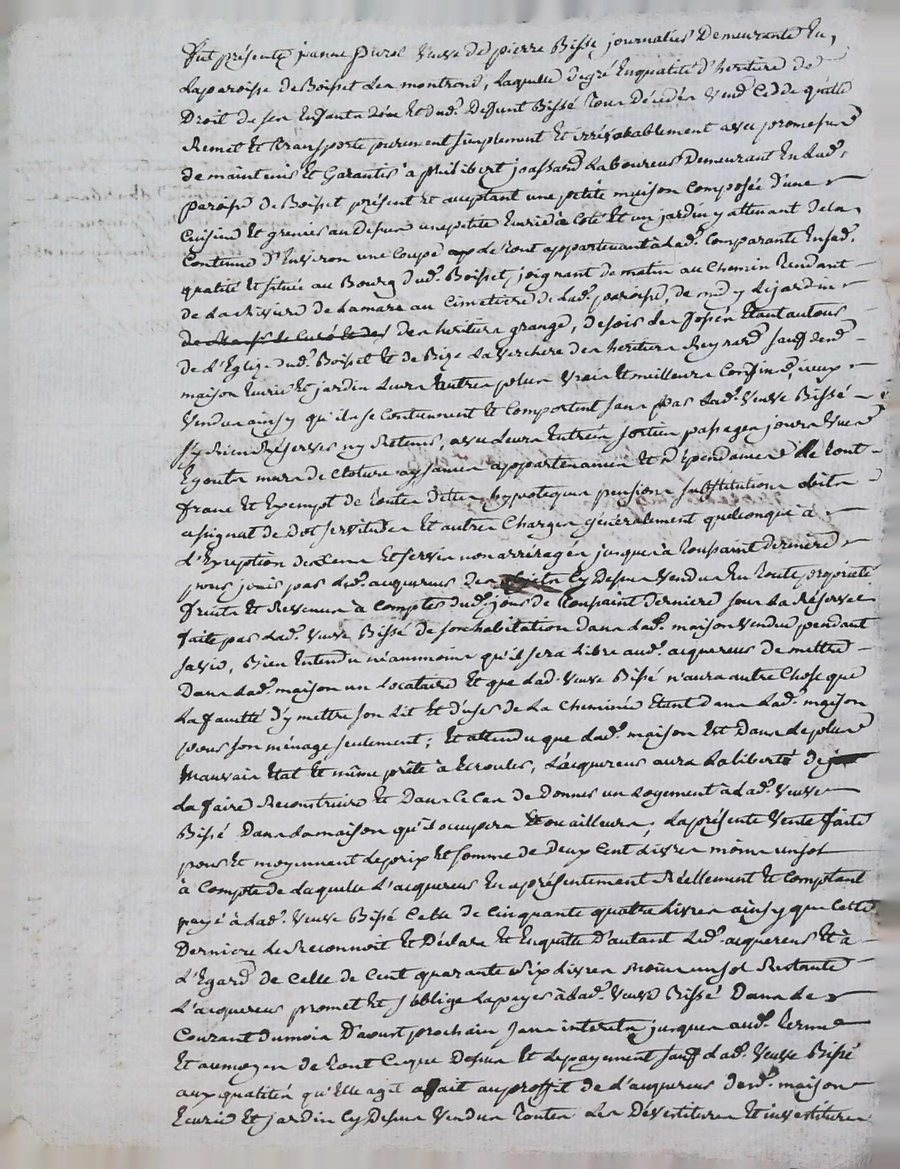 fut présente jeanne veuve de pierre Bissé journalier Demeurante En
la paroisse de Boisset Les montrond, laquelle de gré En qualité d'heritiere de
Droit de ses Enfants d'elle et dud. Deffunt Bissé Tous Décédés Vend Cede quitte
Remet Et transporte purement simplement Et irrévokablement avec promesse
de maintenir Et Garantir à philibert joassand Laboureur Demeurant En lad.
paroisse de Boisset présent Et acceptant une petite maison Composée d'une
Cuisine Et grenier au Dessus une petite Ecurie à Coté Et un jardin y attenant de la
Contenue D'Environ une Coupe le tout appartenant à lad. Comparante En sad.
qualité Et située au Bourg dud. Boisset, joignant de matin au Chemin Tendant
de la au Cimetiere de lad. paroisse, de midy le jardin
des heritiers grange, de soir les fossés Etant autour
de l'Eglise dud. Boisset Et de Bize la Verchere des heritiers Reynard sauf desd.
maison Ecurie Et jardin Leurs autres plus Vrais Et meilleurs Confins, iceux
Vendus ainsy qu'ils se Contiennent Et Comportent sans par lad. Veuve Bissé
s'y Rien Réserver ny Retenir, avec Leurs Entrées sorties passages jours Vues
Egouts murs de Cloture aysances appartenances Et dépendances Le tout
franc Et Exempt de toutes dettes hypoteques pensions substitutions obits
assignat de Dot servitudes Et autres Charges généralement quelconque à
L'Exception des Cens Et servis non arréragés jusques à toussaint derniere
pour jouir par led. acquereur des Cy Dessus Vendus En toute propriété
fruits Et Revenus à Compter dud. jour de toussaint derniere sous la Réserve
faite par lad. Veuve Bissé de son habitation dans lad. maison Vendue pendant
sa vie, Bien Entendu néammoins qu'il sera Libre aud. acquereur de mettre
Dans lad. maison un Locataire Et que lad. Veuve Bissé n'aura autre Chose que
La faculté d'y mettre son Lit Et d'user de la Cheminée Etant dans lad. maison
pour son ménage seulement; Et attendu que lad. maison Est Dans le plus
Mauvais Etat Et même prête à Ecrouler, L'acquereur aura la liberté de
La faire Reconstruire Et Dans Ce Cas de Donner un Logement à lad. Veuve
Bissé Dans la maison qu'il occupera Et ou ailleurs, La présente Vente faite
pour Et moyennant le prix Et somme de Deux Cent Livres moins un sol
à Compte de laquelle L'acquereur En a présentement Réellement Et Comptant
payé à lad. Veuve Bissé Celle de Cinquante quatre Livres ainsy que Cette
Derniere Le Reconnoit Et Déclare Et En quitte D'autant Led. acquereur Et à
L'Egard de Celle de Cent quarante six Livres moins un sol Restante
L'acquereur promet Et s'oblige la payer à lad. Veuve Bissé Dans Le
Courant du mois D'aoust prochain sans interets jusques aud. terme
Et au moyen de tout Ce que Dessus Et le payement sauf lad. Veuve Bissé
aux qualités qu'Elle agit a fait au proffit de l'acquereur desd. maison
Ecurie Et jardin Cy Dessus Vendus Toutes Les Dévestitures Et investitures